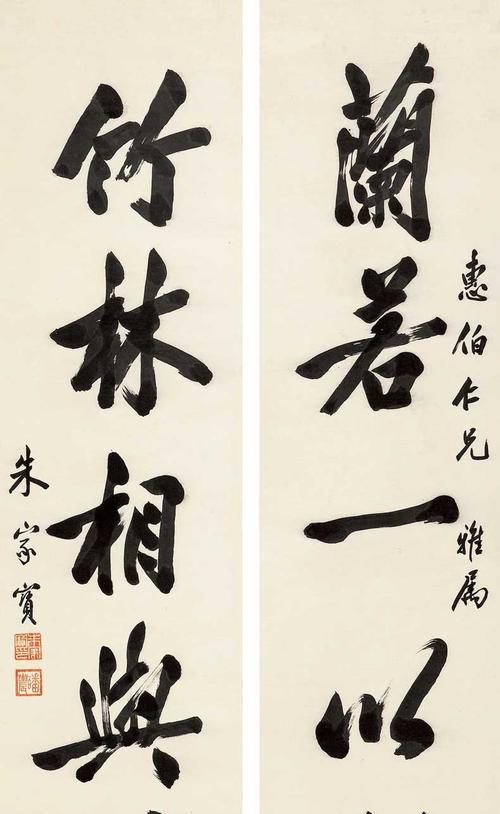 惠伯仁兄 雅属
蘭若一以
竹林相與
朱家寶